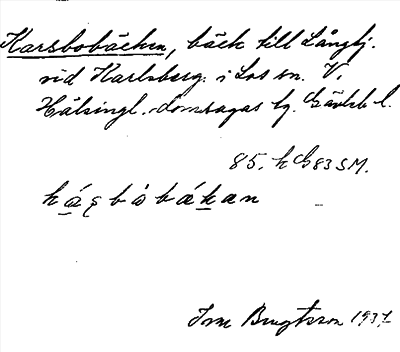 Karsbobäcken, bäck till Långtj.
vid Karlsberg i Los sn. V.
Hälsingl. domsagas tg. Gävleb l.
85. h G 83 S.M.
kásbòbákan
Bengtsson 1937